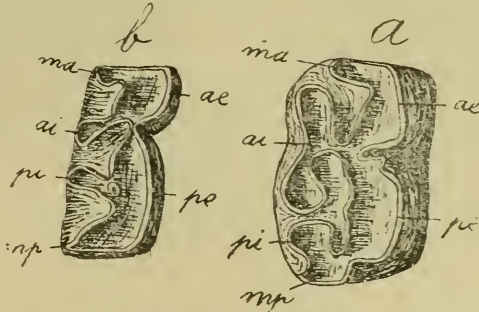 b
ma
ae
ai
pi
pe
mp
a
ma
ae
ai
pe
pi
mp